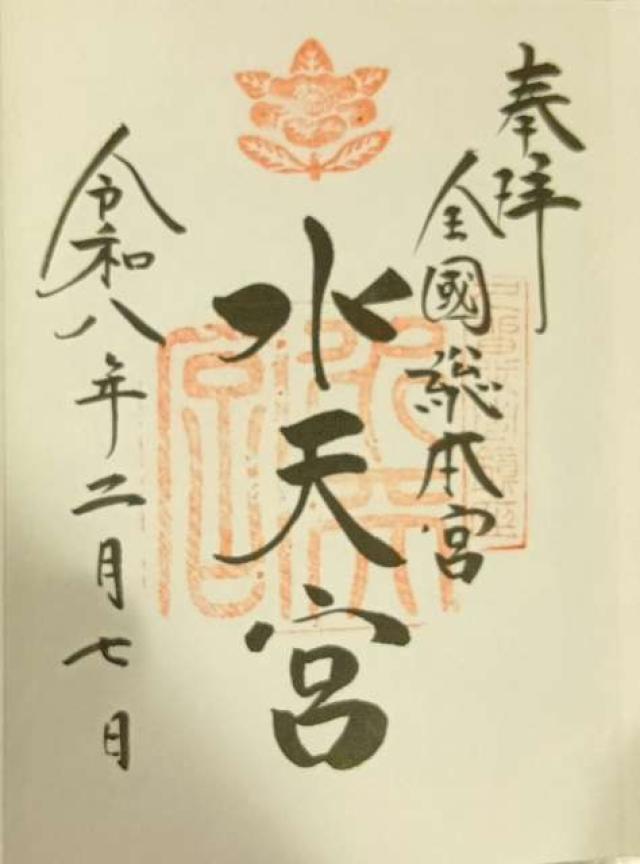 奉拝
全國総本宮
水天宮
令和八年二月七日